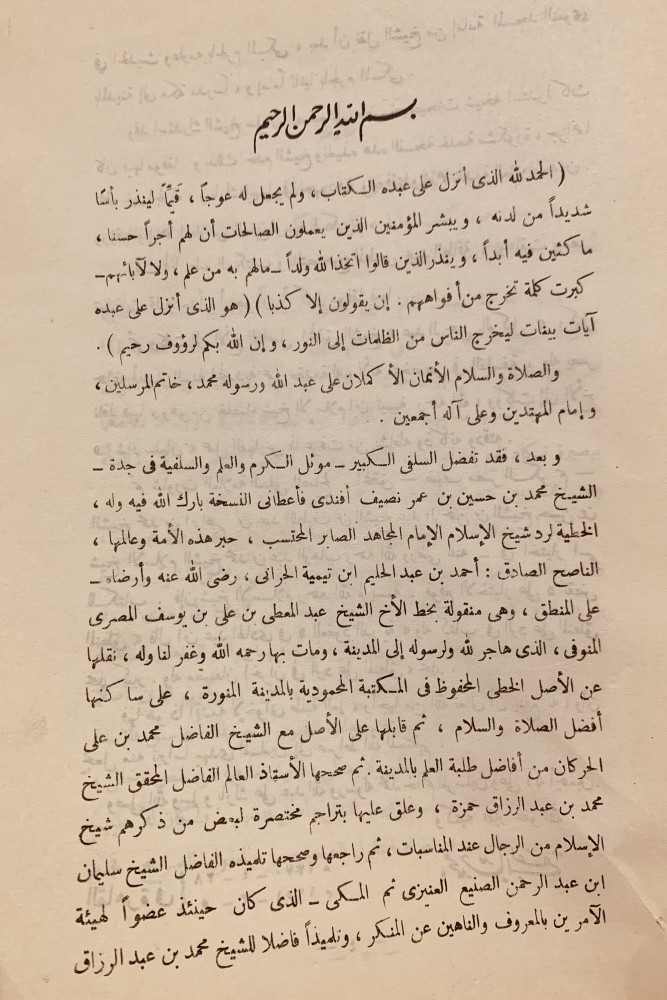 بسم الله الرحمن الرحيم
( الحمد لله الذى أنزل على عبده الكتاب ، ولم يجعل له عوجاً ، قيّماً لينذر بأسًا
شديداً من لدنه ، ويبشر المؤمنين الذين يعملون الصالحات أن لهم أجراً حسنا ،
ما كثين فيه أبداً ، وينذر الذين قالوا اتخذ الله ولداً ــ مالهم به من علم ، ولا لآبائهم ــ
كبرت كلمة تخرج من أفواههم . إن يقولون إلا كذبا ) ( هو الذى أنزل على عبده
آيات بينات ليخرج الناس من الظلمات إلى النور ، وإن الله بكم لرؤوف رحيم ) .
والصلاة والسلام الأتمان الأكملان على عبد الله ورسوله محمد ، خاتم المرسلين ،
وإمام المهتدين وعلى آله أجمعين .
وبعد ، فقد تفضل السلفى الكبير ــ موئل الكرم والعلم والسلفية فى جدة ــ
الشيخ محمد بن حسين بن عمر نصيف أفندى فأعطانى النسخة بارك الله فيه وله ،
الخطية لرد شيخ الإسلام الإمام المجاهد الصابر المحتسب ، حبر هذه الأمة وعالمها ،
الناصح الصادق : أحمد بن عبد الحليم ابن تيمية الحرانى ، رضى الله عنه وأرضاه ــ
على المنطق ، وهى منقولة بخط الأخ الشيخ عبد المعطى بن على بن يوسف المصرى
المنوفى ، الذى هاجر لله ولرسوله إلى المدينة ، ومات بها رحمه الله وغفر لنا وله ، نقلها
عن الأصل الخطى المحفوظ فى المكتبة المحمودية بالمدينة المنورة ، على ساكنها
أفضل الصلاة والسلام ، ثم قابلها على الأصل مع الشيخ الفاضل محمد بن على
الحركان من أفاضل طلبة العلم بالمدينة . ثم صححها الأستاذ العالم الفاضل المحقق الشيخ
محمد بن عبد الرزاق حمزة ، وعلق عليها بتراجم مختصرة لبعض من ذكرهم شيخ
الإسلام من الرجال عند المناسبات ، ثم راجعها وصححها تلميذه الفاضل الشيخ سليمان
ابن عبد الرحمن الصنيع العنيزى ثم المكى ــ الذى كان حينئذ عضواً لهيئة
الآمرين بالمعروف والناهين عن المنكر ، وتلميذاً فاضلا للشيخ محمد بن عبد الرزاق